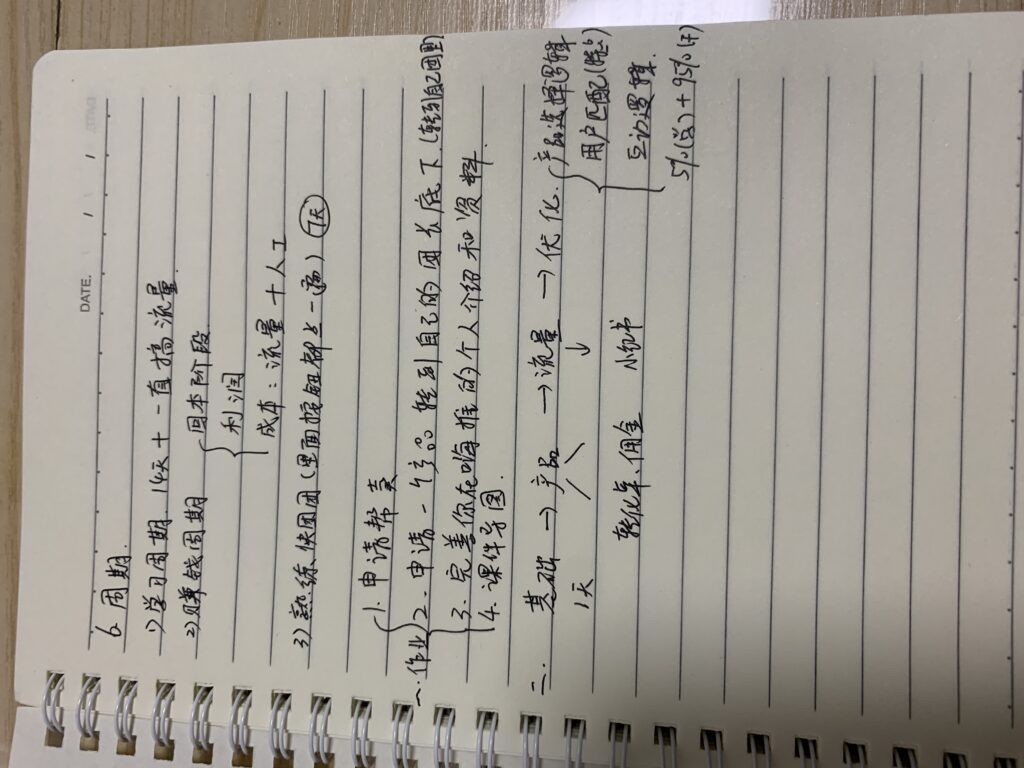 DATE.
6. 周期.
1) 学习周期 14天 + 一直搞流量.
2) 赚钱周期 { 回本阶段
利润
成本: 流量 + 人工
3) 熟练快团团 (里面按钮都点一遍) 7天
一. 作业 { 1. 申请帮卖
2. 申请一个产品 转到自己的团长底下 (转到自己团)
3. 完善你在嗨推的个人介绍和资料.
4. 课件导图.
二. 基础 → 产品 → 流量 → 优化. { 产品选择逻辑
1天 ↓ 用户匹配
转化率. 佣金 小红书 { 互动逻辑.
5% + 95%